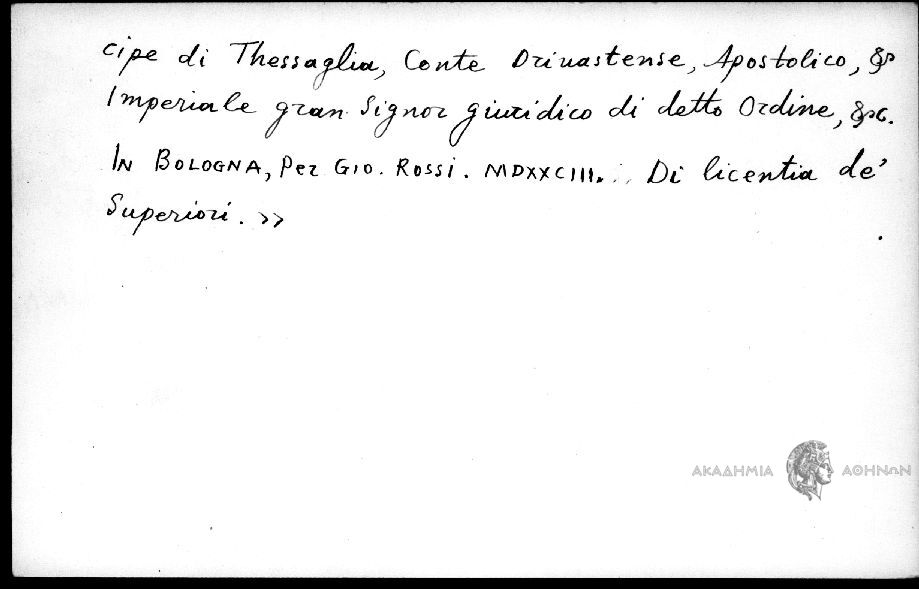 cipe di Thessaglia, Conte Drivastense, Apostolico, &
Imperiale gran Signor giuridico di detto Ordine, &c.
IN BOLOGNA, Per GIO. ROSSI. MDXXCIII. Di licentia de'
Superiori. >>
ΑΚΑΔΗΜΙΑ ΑΘΗΝΩΝ